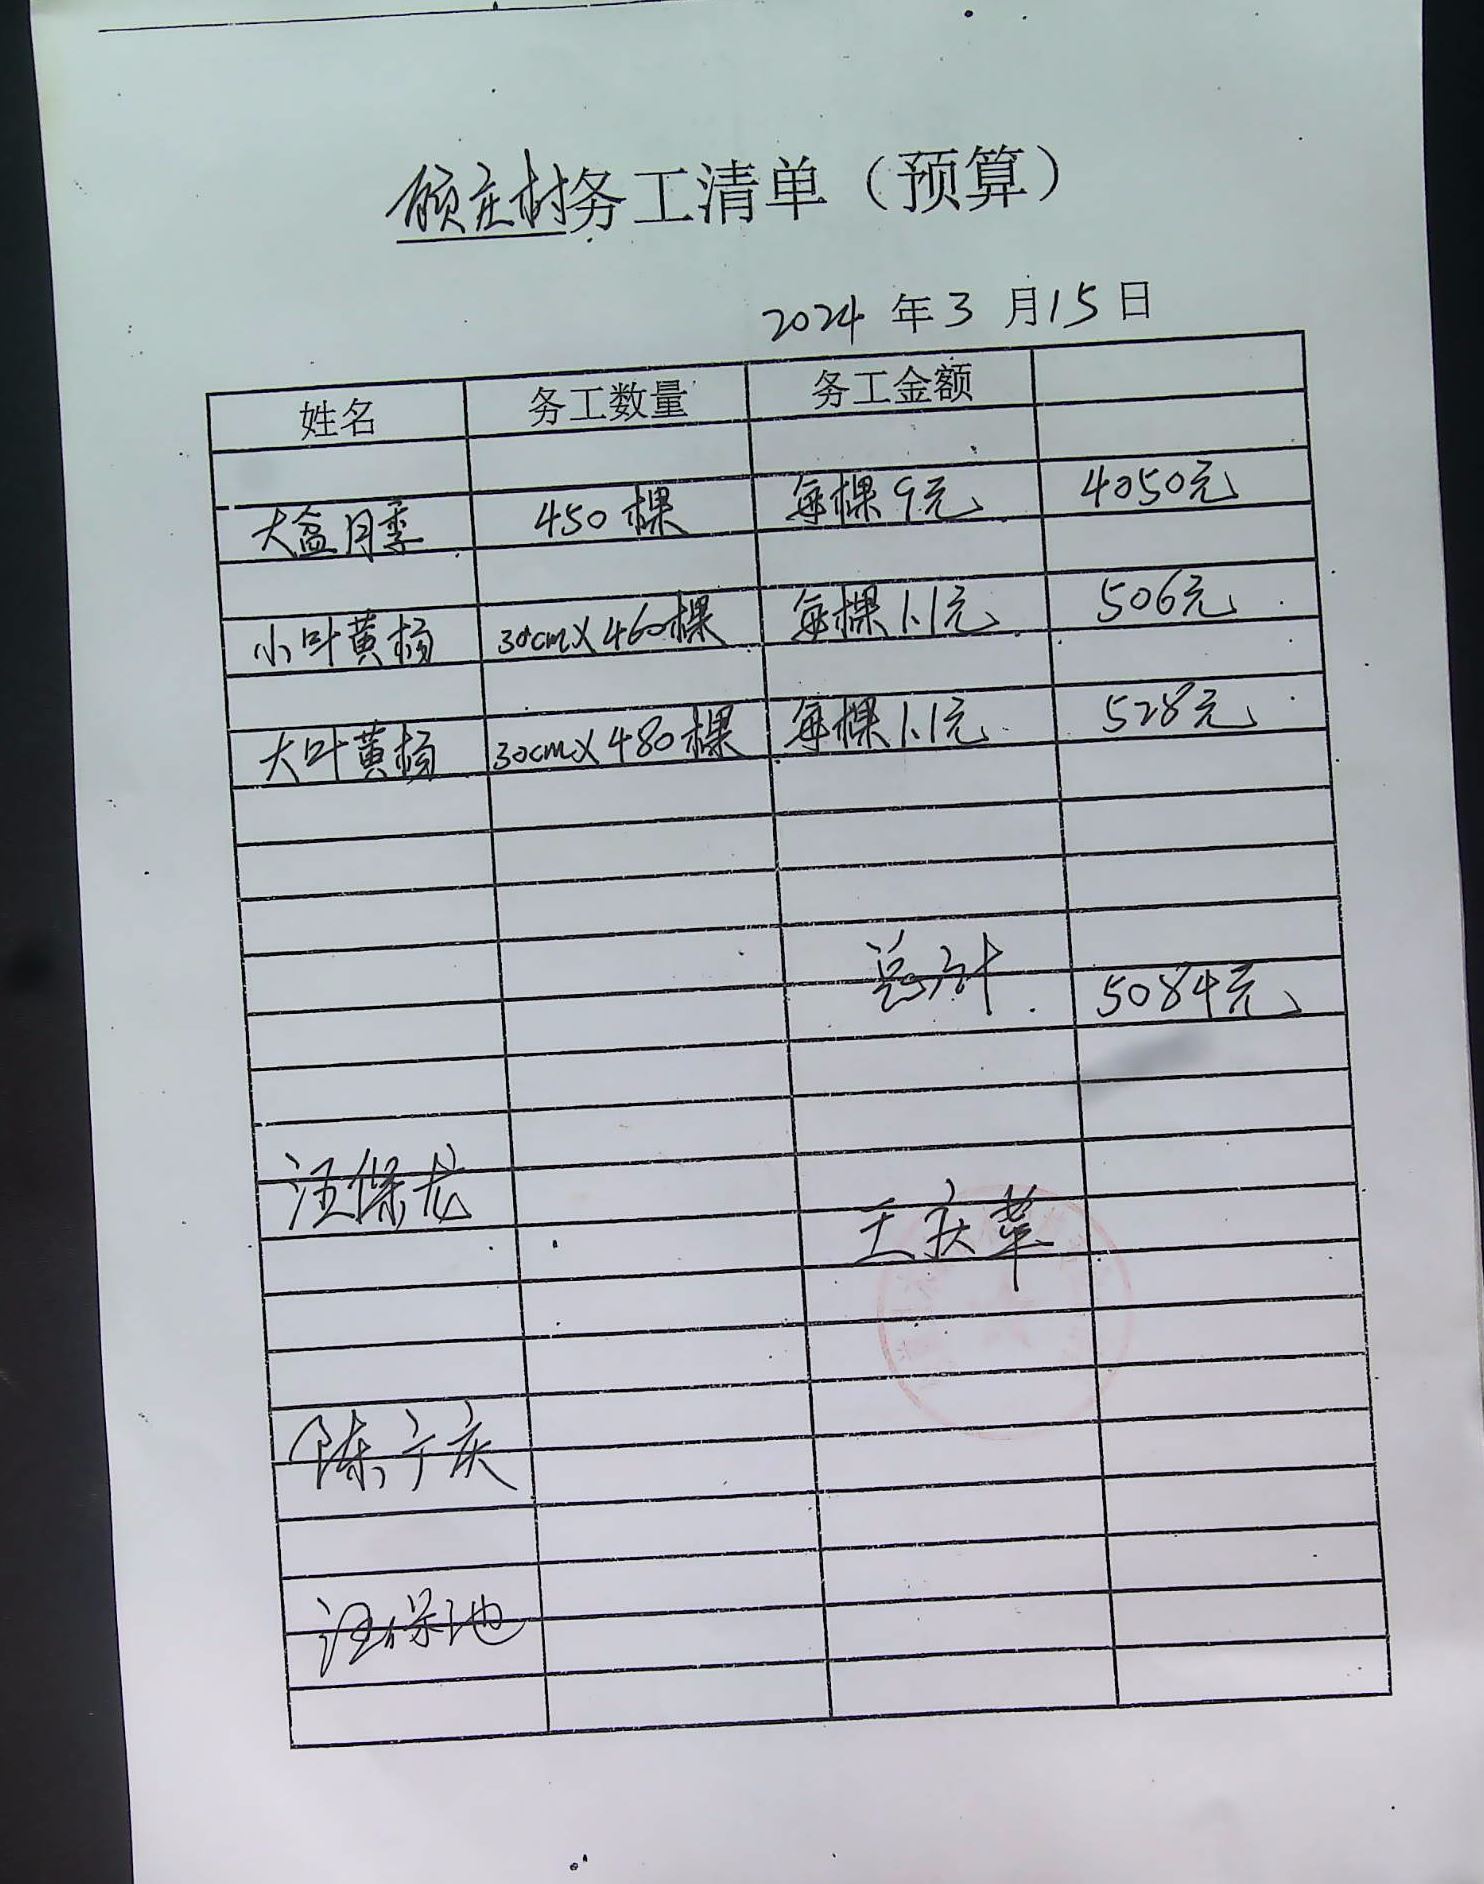 顾庄村务工清单（预算）
2024 年 3 月 15 日
姓名 务工数量 务工金额
大盆月季 450棵 每棵9元 4050元
小叶黄杨 30cm×460棵 每棵1.1元 506元
大叶黄杨 30cm×480棵 每棵1.1元 528元
总计 5084元
汪保龙
王庆華
陈广庆
汪保池